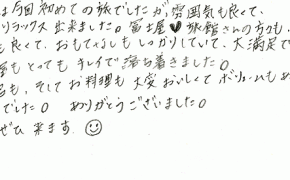 は今回初めての旅でしたが、雰囲気も良くて、
リラックス出来ました。冨士屋♥旅館さんの方々も、
も良くて、おもてなしもしっかりしていて、大満足で
屋もとってもキレイで落ち着きました。
も、そしてお料理も大変おいしくてボリュームもめ
でした。ありがとうございました。
ぜひ来ます ☺